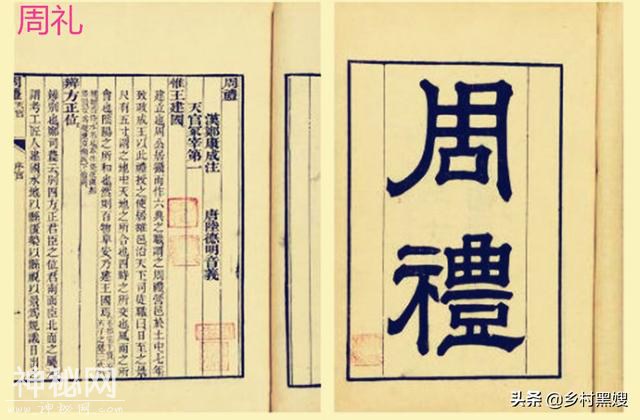 周礼
周禮
禮
周禮
漢鄭康成注 唐陸德明音義
天官冢宰第一
惟王建國
建立也周公居攝而作六典之職謂之周禮營邑於土中七年
致政成王以此禮授之使居雒邑治天下司徒職曰日至之景
尺有五寸謂之地中天地之所合也四時之所交也風雨之所
會也陰陽之所和也然則百物阜安乃建王國焉
辨方正位
辨別也鄭司農云別四方正君臣之位君南面臣北面之屬
謂考工匠人建國水地以縣置槷以縣視以景爲規識日出
周禮
天官
序官
神秘网
头条 @乡村黑嫂